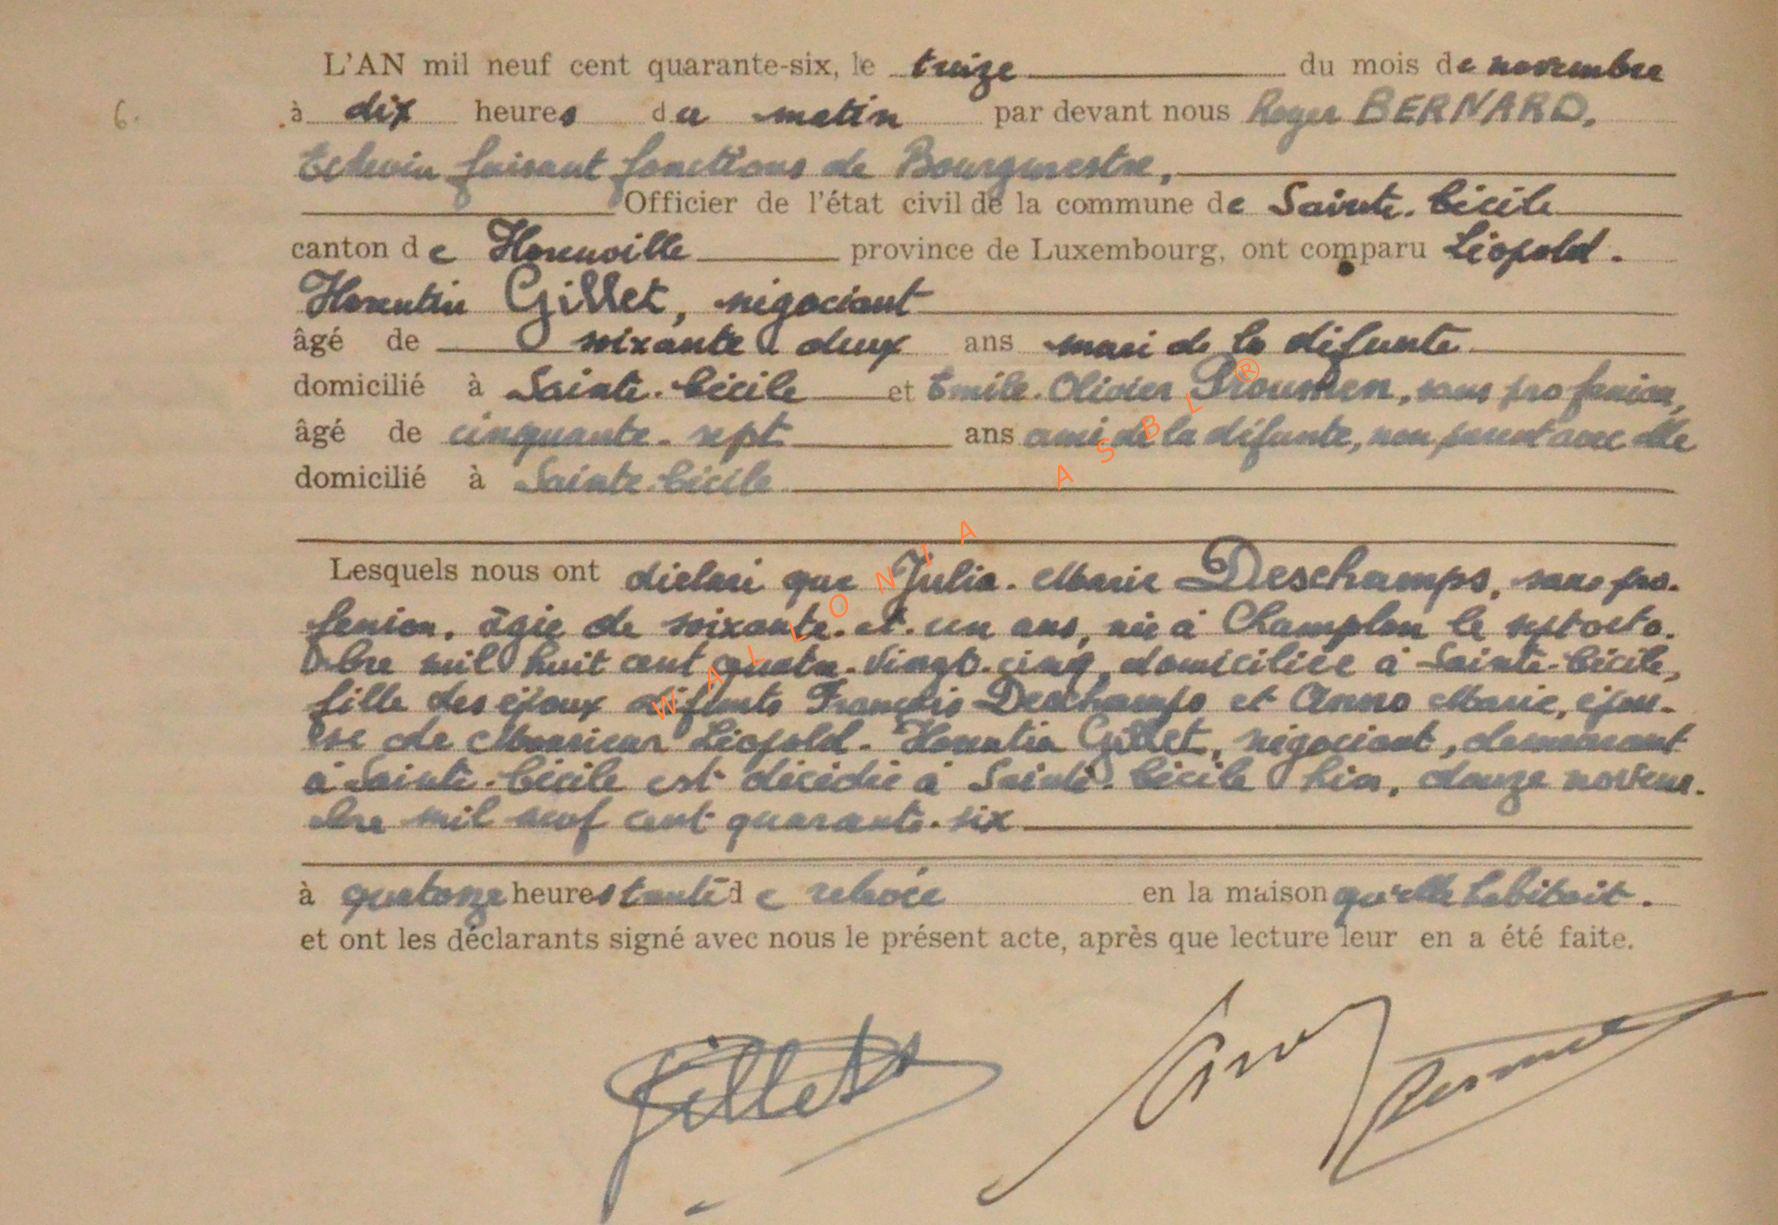 L'AN mil neuf cent quarante-six, le treize du mois de novembre
6. à dix heures du matin par devant nous Roger BERNARD,
Echevin faisant fonctions de Bourgmestre,
Officier de l'état civil de la commune de Sainte-Cécile
canton de Florenville province de Luxembourg, ont comparu Léopold-
Florentin Gillet, négociant
âgé de soixante-deux ans mari de la défunte
domicilié à Sainte-Cécile et Emile-Olivier Proumen, sans profession,
âgé de cinquante-sept ans ami de la défunte, non parent avec elle
domicilié à Sainte-Cécile
Lesquels nous ont déclaré que Julia-Marie Deschamps, sans pro-
fession, âgée de soixante-et-un ans, née à Champlon le sept octo-
bre mil huit cent quatre-vingt-cinq, domiciliée à Sainte-Cécile,
fille des époux défunts François Deschamps et Anne Marie, épou-
se de Monsieur Léopold-Florentin Gillet, négociant, demeurant
à Sainte-Cécile est décédée à Sainte-Cécile hier, douze novem-
bre mil neuf cent quarante-six
à quatorze heures trente de relevée en la maison qu'elle habitait.
et ont les déclarants signé avec nous le présent acte, après que lecture leur en a été faite.
Gillet
WALLONIA ASBL ®